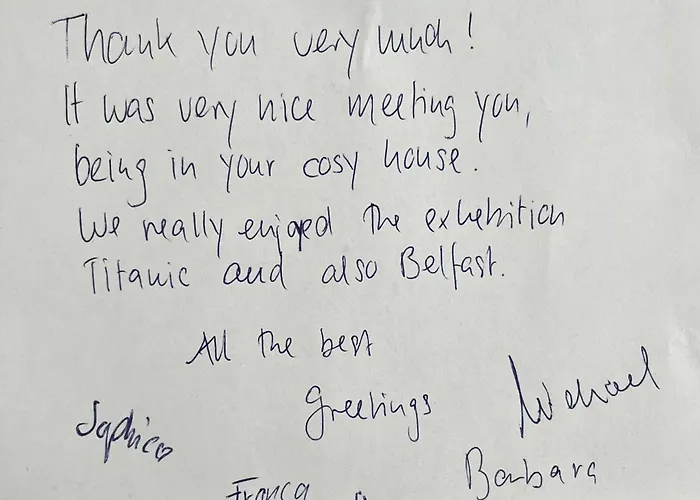 Thank you very much!
It was very nice meeting you,
being in your cosy house.
We really enjoped the exhebition
Titanic and also Belfast.
All the best
Greetings
Michael
Barbara
Franca